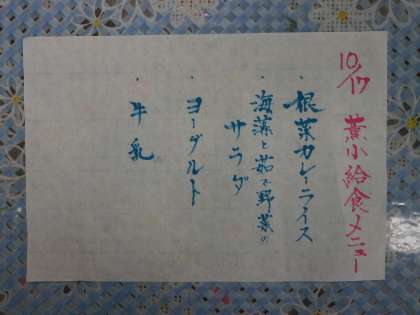 10/17 薫小給食メニュー
・根菜カレーライス
・海藻と茹で野菜の
サラダ
・ヨーグルト
・牛乳